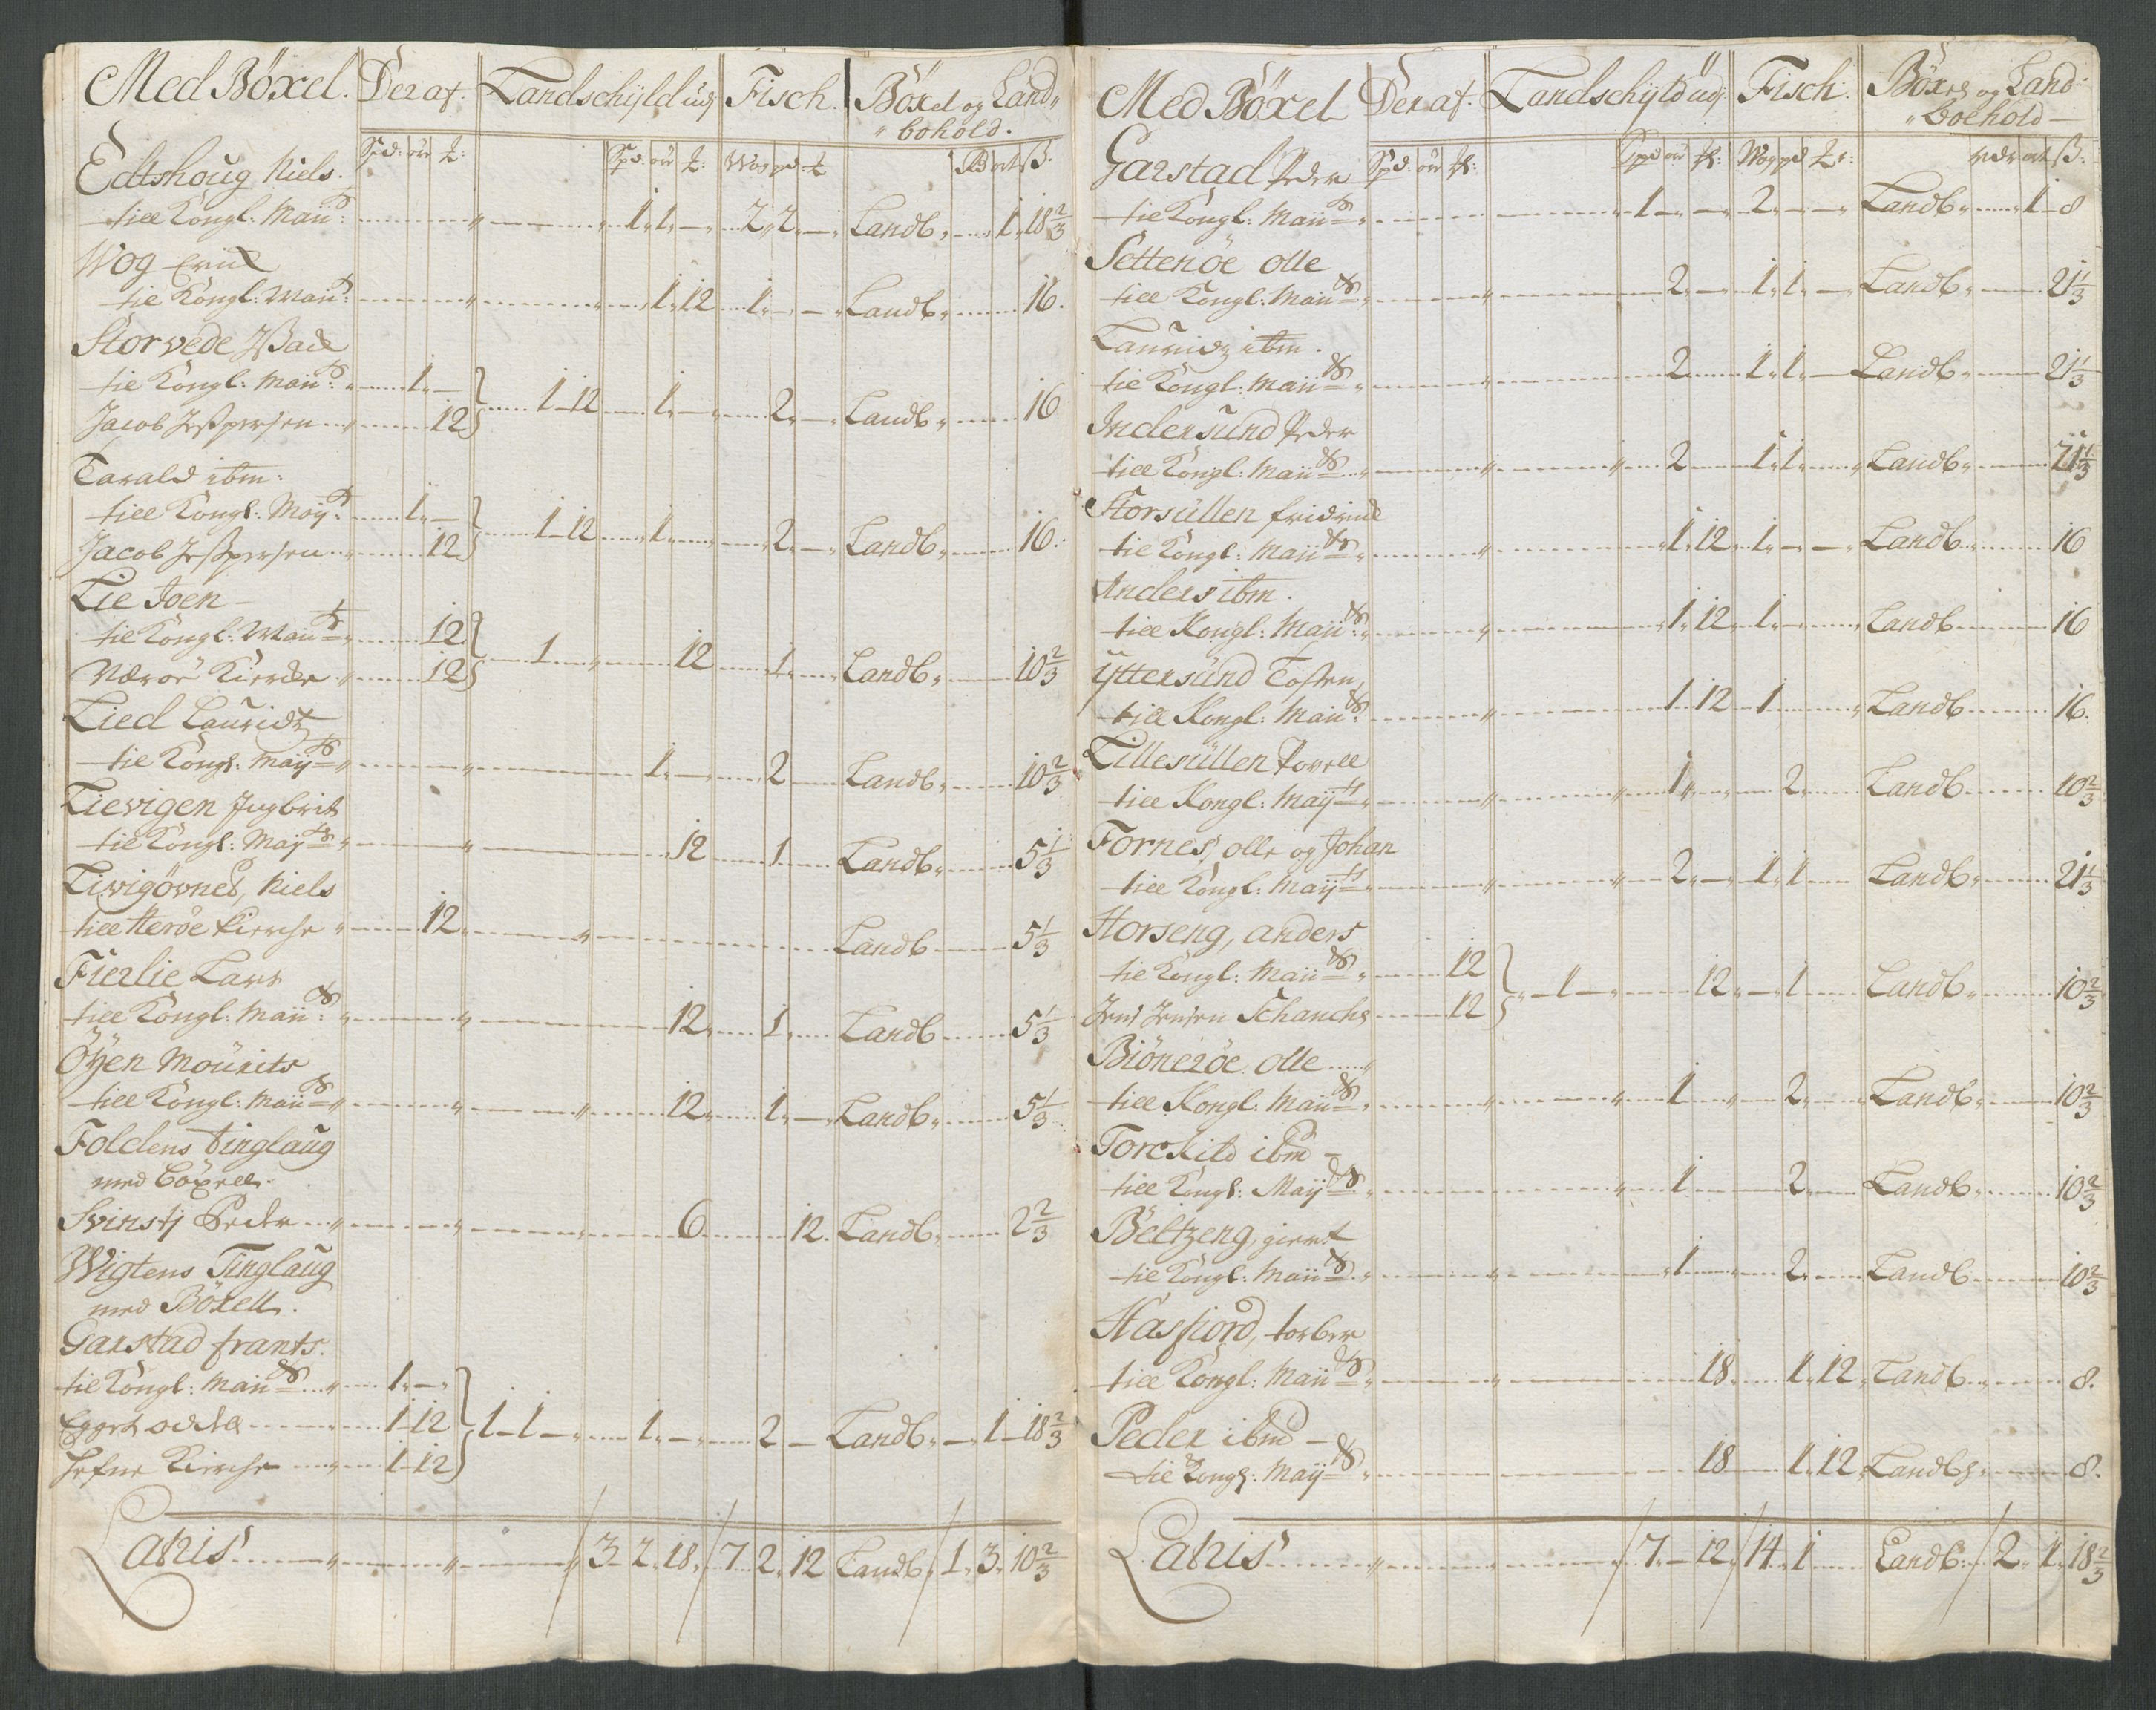 Med Böxel. Deraf. Landschyld udj Fisch. Böxel og Land
bohold.
Spd: ör ℔: Spd: ör ℔: Wog pd: ℔ Rd ort ß.
Edtshoug Niels.
till Kongl: Maii: 1. 1. — 2. 2. — Landb. 1. 18 2/3
Wog Erich
til Kongl: Maii: 1. 12 1. — — Landb. 16.
Storvede Isach
til Kongl: Maii: 1. —
1 12 1. — 2. — Landb. 16
Jacob Jespersen 12
Tarald ibm:
till Kongl: May: 1. —
1 12 1. 2. — Landb. 16.
Jacob Jespersen 12
Lie Joen
til Kongl: Maii 12
1 12 1. Landb. 10 2/3
Nærøe Kircke 12
Lied Lauridtz
til Kongl: Maij 1. — 2 Landb. 10 2/3
Lievigen Ingbrit
til Kongl: May 12 1 Landb. 5 1/3
Livigövnes, Niels
till Herøe Kirche 12 Landb 5 1/3
Fierlie Lars
till Kongl: Maii 12. 1. Landb 5 1/3
Öyen Mourits
till Kongl: Maii 12. 1. — Landb. 5 1/3
Foldens tinglaug
med böxell.
Svinstj Peder 6 12. Landb. 2 2/3
Wigtens Tinglaug
med Böxell.
Garstad frants.
til Kongl: Maii 1. —
1 12
1 1 — 1. — 2 — Landb. 1 18 2/3
Kirche 1 12
Latris 3 2. 18. 7 2 12 Landb. 1. 3. 10 2/3
Med Böxel Deraf. Landschyld udj Fisch. Böxel og Land
boehold
Spd: ör ℔: Spd ör ℔: Wog pd ℔: rdr ort ß:
Garstad Peder
til Kongl: Maii 1 — — 2. — — Landb. 1 8
Setterøe olle
till Kongl: Maii 2. — 1. 1. — Landb. 21 1/3
Lauridz ibm.
til Kongl: Maii 2. 1. 1. — Landb. 21 1/3
Indersund Peder
till Kongl: Maii 2 1. 1. Landb. 21 1/3
Storsullen fridrich
til Kongl: Maii 1. 12. 1. — — Landb. 16
Anders ibm.
till Kongl: Maii 1. 12. 1. — Landb. 16
Yttersund Tosten
till Kongl: Maii 1. 12 1 Landb 16.
Lillesullen Povell
till Kongl: Maij 1. 2. Landb 10 2/3
Fornes, olle og Johan
till Kongl: Maij 2. — 1. 1. Landb. 21 1/3
Horseng, anders
til Kongl: Maii 12
1 — 12. 1 Landb. 10 2/3
Jens Jensen Schanche 12
Biönerøe olle
till Kongl: Maii 1 2. Landb. 10 2/3
Torckild ibm
till Kongl: Maij 1 2. Landb. 10 2/3
Böltzeng, giert
til Kongl: Maii 1 2. Landb 10 2/3
Hasfiord, torber
till Kongl: Maii 18. 1. 12. Landb. 8.
Peder ibm
til Kongl: Maij 18 1. 12 Landb. 8.
Latris 7. — 12. 14. 1 Landb. 2. 1. 18 2/3